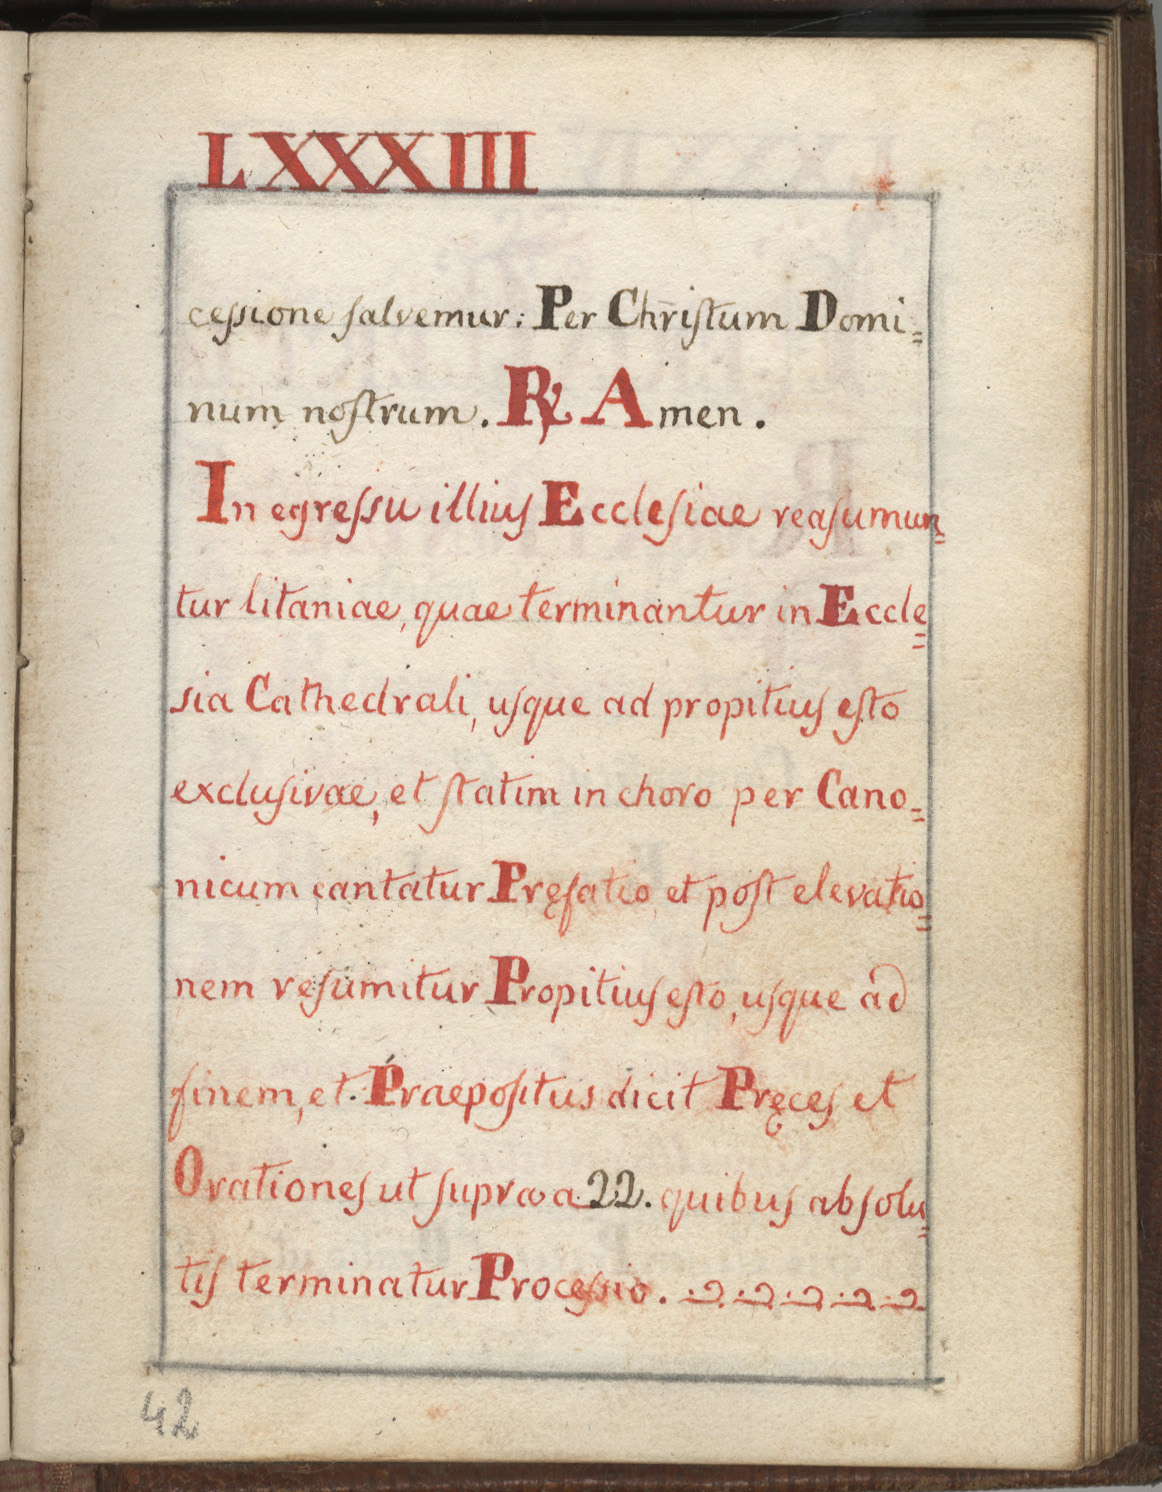 LXXXIII
ceſsione ſalvemur: Per Chr̄iſtum Domi=
num noſtrum. ℟ Amen.
In egreſsu illiuſ Eccleſiae reaſumun=
tur litaniae, quae terminantur in Eccle=
sia Cathedrali, uſque ad propitiuſ eſto
excluſivae, et ſtatim in choro per Cano=
nicum cantatur Pręfatio et poſt elevatio=
nem reſumitur Propitiuſ eſto, uſque ad
finem, et. Praepoſitus dicit Pręceſ et
Orationeſ ut ſupra a 22. quibuſ abſolu=
tiſ terminatur Proceſsio.
42